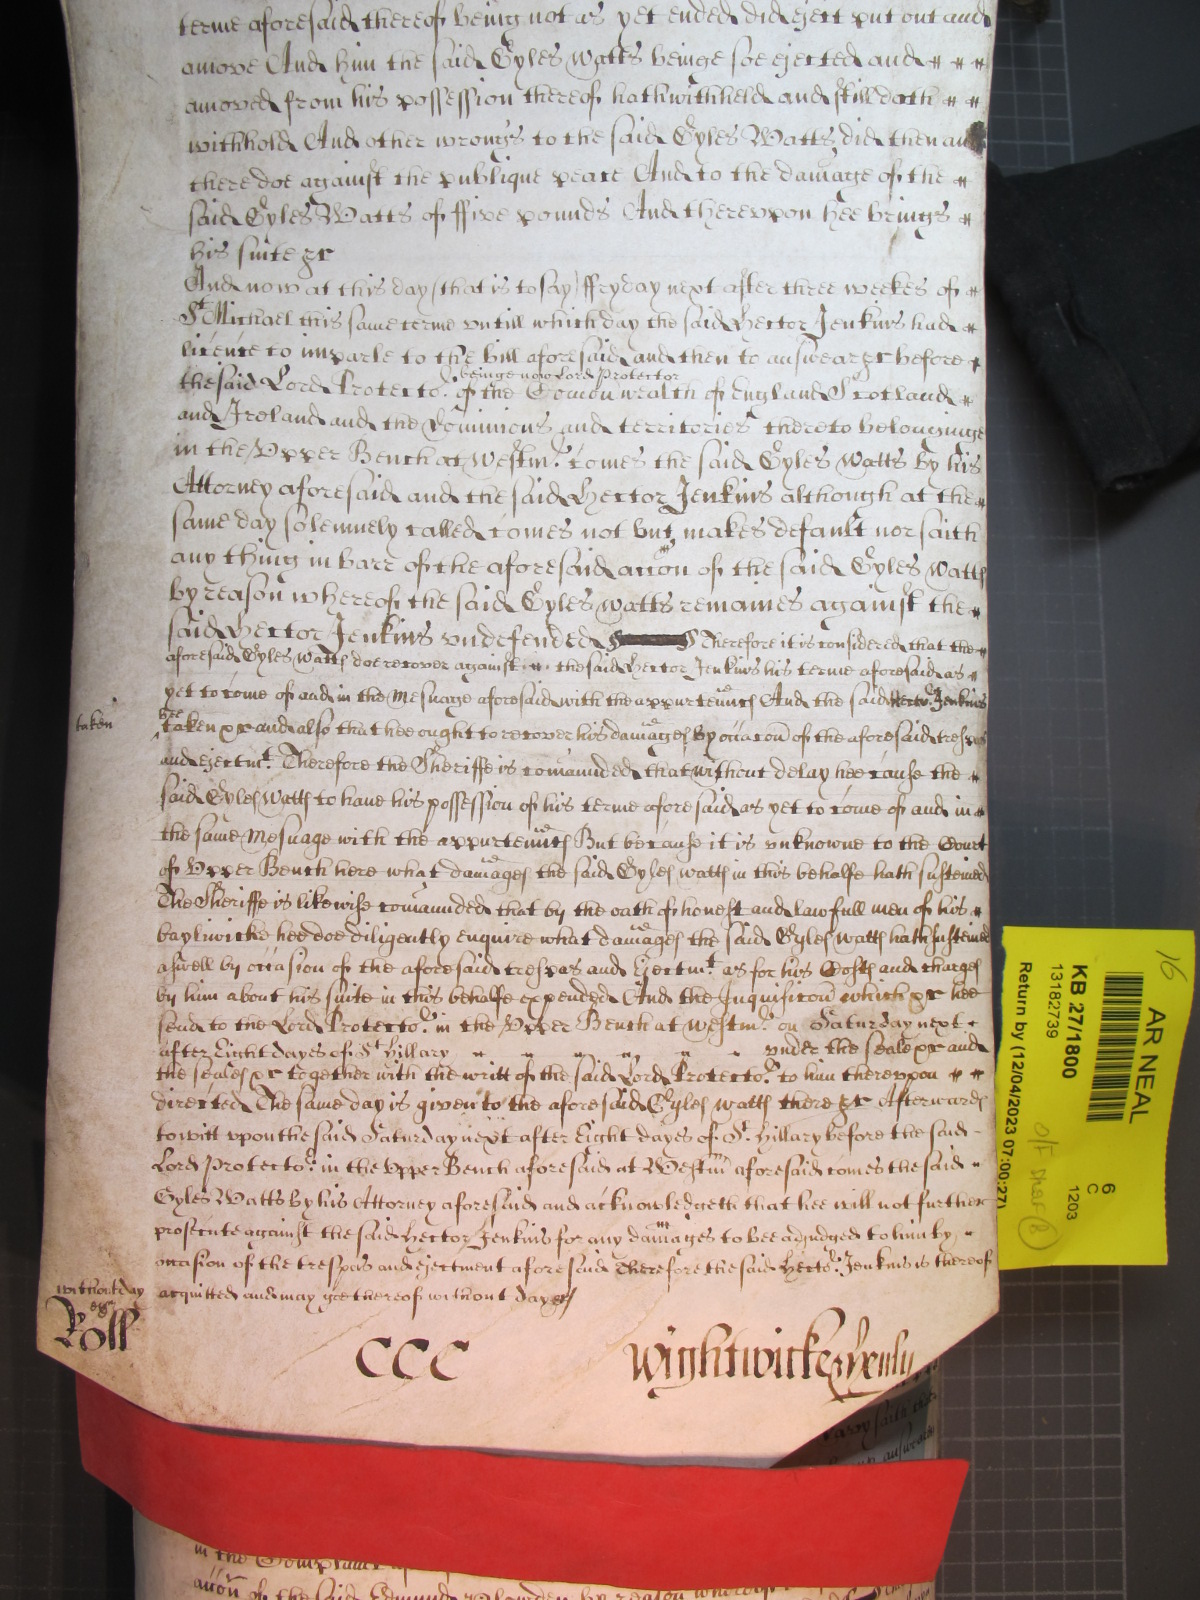 terme aforesaid thereof being not as yet ended did eject put out and
amove And him the said Gyles Watts beinge soe ejected and
amoved from his possession thereof hath withheld and still doth
withhold And other wrongs to the said Gyles Watts did then and
there doe against the publique peace And to the damage of the
said Gyles Watts of ffive pounds And therevpon hee brings
his suite &c
And now at this day (that is to say) ffryday next after three weekes of
St Michael this same terme vntill which day the said Hector Jenkins had
licence to imparle to the bill aforesaid and then to answear &c before
the said Lord Protector beinge now Lord Protector of the Comon wealth of England Scotland
and Ireland and the Dominions and territories thereto belonginge
in the Vpper Bench at Westmr comes the said Gyles Watts by his
Attorney aforesaid and the said Hector Jenkins although at the
same day solemnely called comes not but makes default nor saith
any thing in barr of the aforesaid accon of the said Gyles Watts
by reason whereof the said Gyles Watts remaines against the
said Hector Jenkins vndefended Therefore it is considered that the
aforesaid Gyles Watts doe recover against the said Hector Jenkins his terme aforesaid as
yet to come of and in the Mesuage aforesaid with the appurtenncs And the said Hector Jenkins
taken
bee taken &c and also that hee ought to recover his damages by occacon of the aforesaid trespas
and ejectmt Therefore the Sheriffe is comaunded that without delay hee cause the
said Gyles Watts to have his possession of his terme aforesaid as yet to come of and in
the same Mesuage with the appurtenncs But because it is vnknowne to the Court
of Vpper Bench here what damages the said Gyles Watts in this behalfe hath susteined
The Sheriffe is likewise comaunded that by the oath of honest and lawfull men of his
bayliwicke hee doe diligently enquire what damages the said Gyles Watts hath susteined
aswell by occasion of the aforesaid trespas and Ejectmt as for his Costs and charges
by him about his suite in this behalfe expended And the Inquisicon which &c hee
send to the Lord Protector in the Vpper Bench at Westmr on Saturday next
after Eight dayes of St Hillary vnder the seale &c and
the seales &c together with the writt of the said Lord Protector to him therevpon
directed The same day is given to the aforesaid Gyles Watts there &c Afterwards
to witt vpon the said Saturday next after Eight dayes of St Hillary before the said
Lord Protector in the Vpper Bench aforesaid at Westmr aforesaid comes the said
Gyles Watts by his Attorney aforesaid and acknowledgeth that hee will not further
prosecute against the said Hector Jenkins for any damages to bee adjudged to him by
occasion of the trespas and ejectment aforesaid Therefore the said Hector Jenkins is thereof
acquitted and may goe thereof without day &c
without day
Roll
CCC
Wightwicke
16
AR NEAL
KB 27/1800
13182739
Return by (12/04/2023 07:00:27)
6
C
1203
in the
accon of the said Edmund Plowden by reason whereof